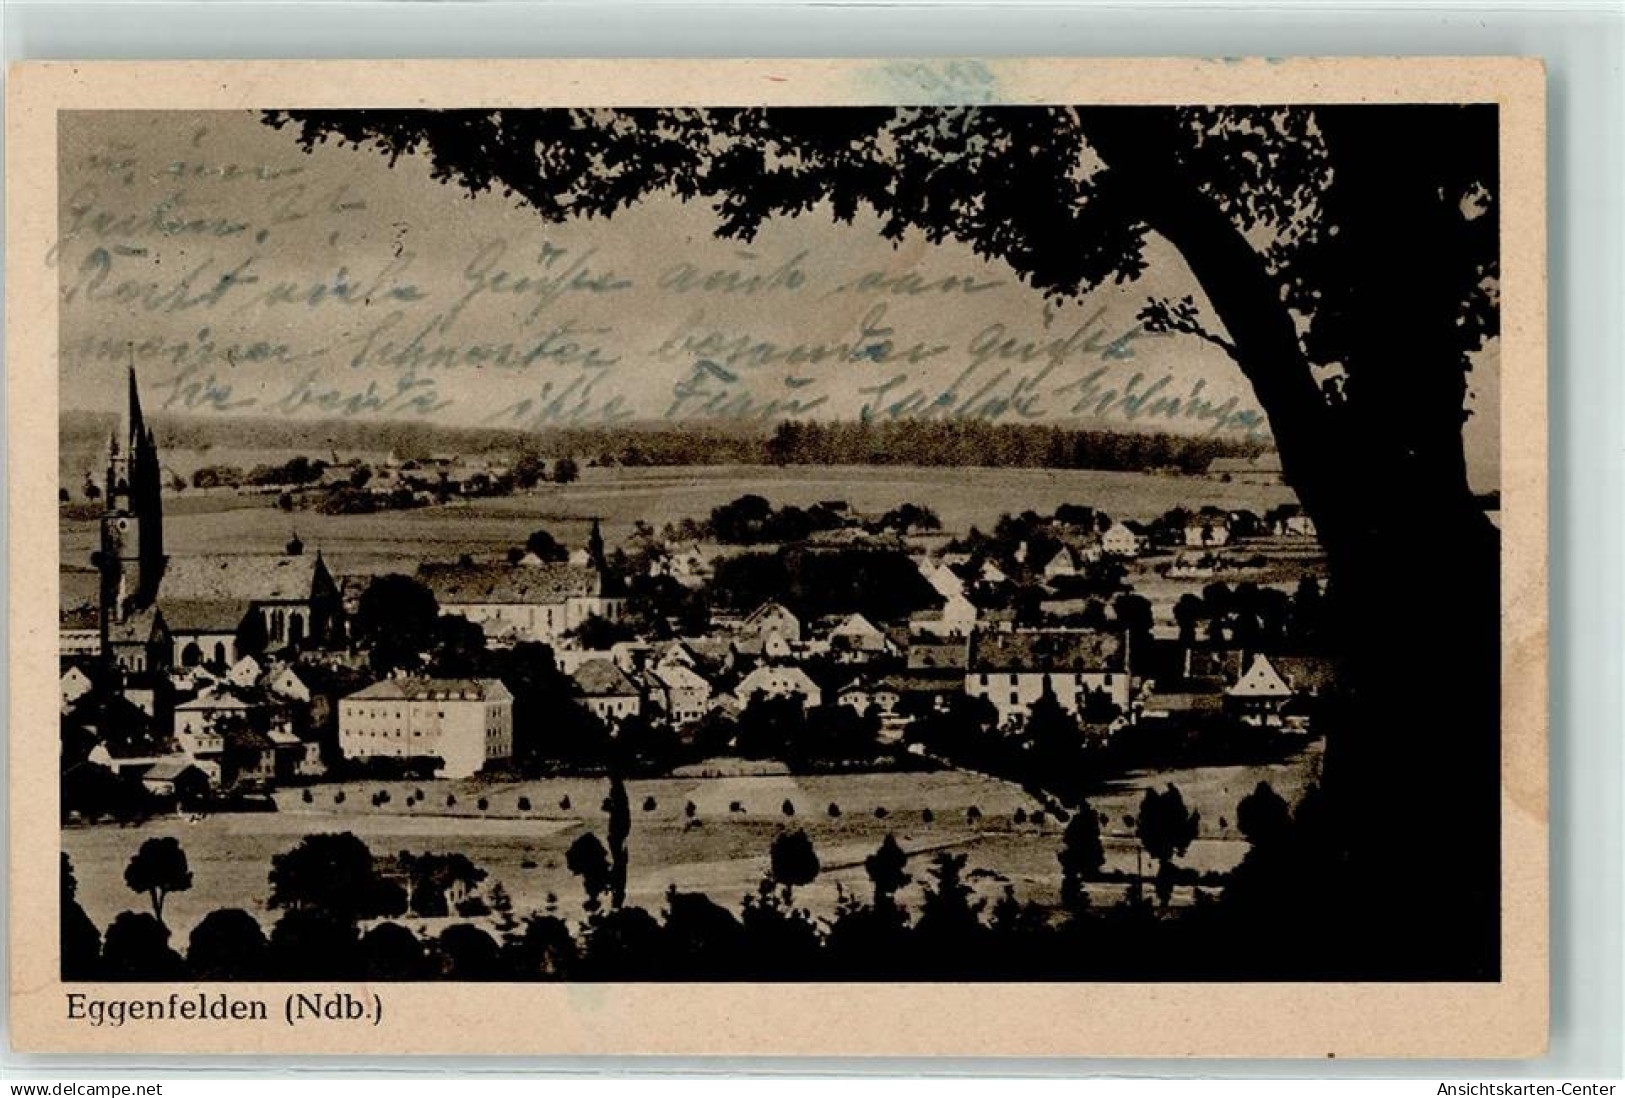 im
Garten.
Recht viele Grüße auch von
meiner Schwester besonders grüßt
Sie beide ihre Frau
Eggenfelden (Ndb.)
www.delcampe.net
Ansichtskarten-Center